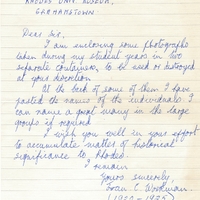 RHODES UNIV. MUSEUM,
GRAHAMSTOWN
Dear Sir,
I am enclosing some photographs
taken during my student years in two
separate containers, to be used or destroyed
at your discretion.
At the back of some of them I have
pasted the names of the individuals. I
can name a great many in the large
groups if required.
I wish you well in your effort
to accumulate matter of historical
significance to Rhodes.
I remain
Yours sincerely,
C. Workman.